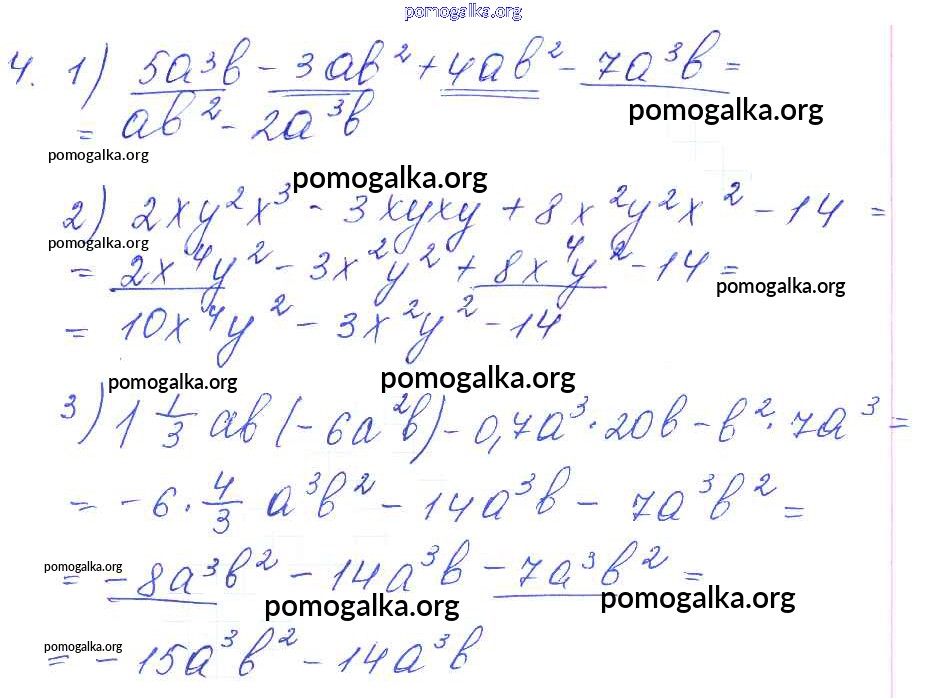 pomogalka.org
4. 1) 5a³b - 3ab² + 4ab² - 7a³b =
pomogalka.org
= ab² - 2a³b
pomogalka.org
pomogalka.org
2) 2xy²x³ - 3xyxy + 8x²y²x² - 14 =
pomogalka.org
= 2x⁴y² - 3x²y² + 8x⁴y² - 14 =
pomogalka.org
= 10x⁴y² - 3x²y² - 14
pomogalka.org pomogalka.org
3) 1 1/3 ab(-6a²b) - 0,7a³·20b - b²·7a³ =
= -6 · 4/3 a³b² - 14a³b - 7a³b² =
pomogalka.org
= -8a³b² - 14a³b - 7a³b² =
pomogalka.org pomogalka.org
pomogalka.org
= -15a³b² - 14a³b